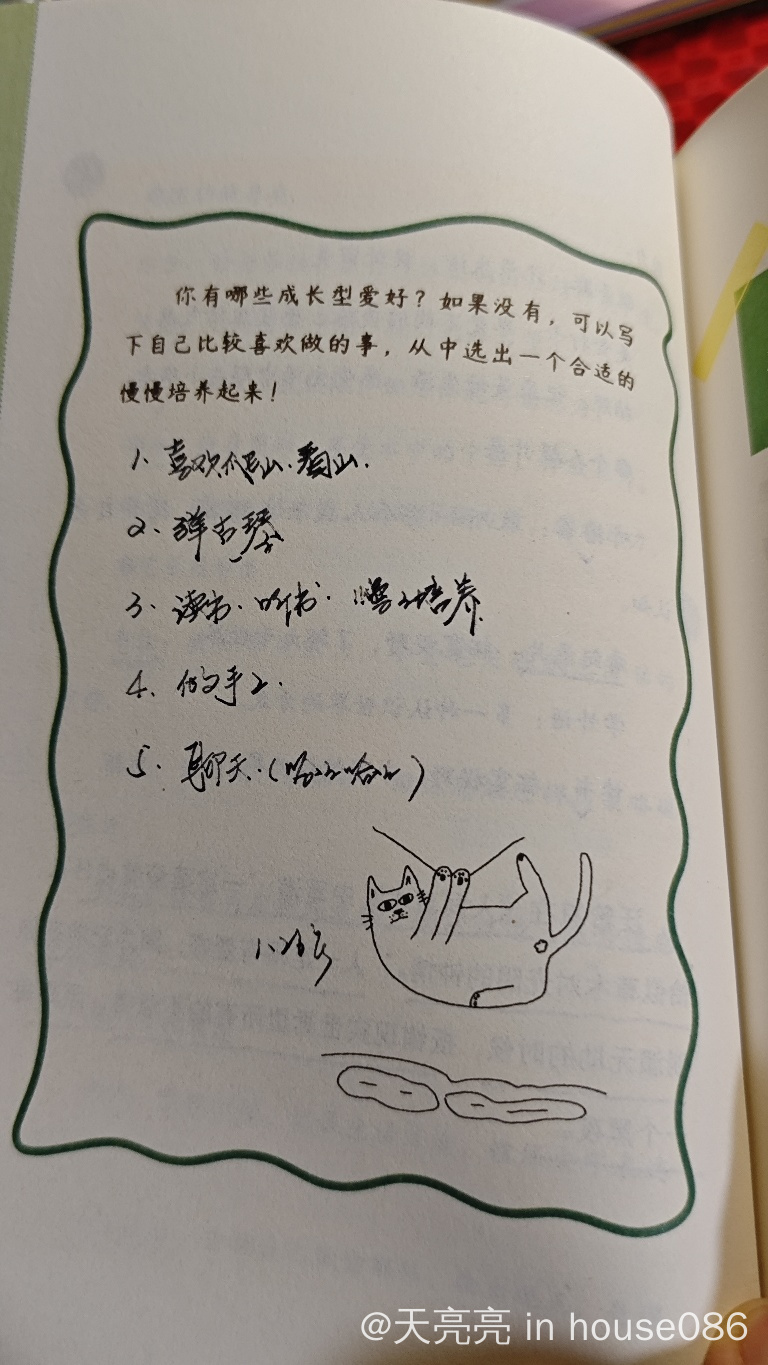 你有哪些成长型爱好？如果没有，可以写
下自己比较喜欢做的事，从中选出一个合适的
慢慢培养起来！
1、喜欢爬山、看山.
2、弹古琴
3、读书·听书· 培养
4、做手工·
5、聊天·(哈哈哈哈)
@天亮亮 in house086